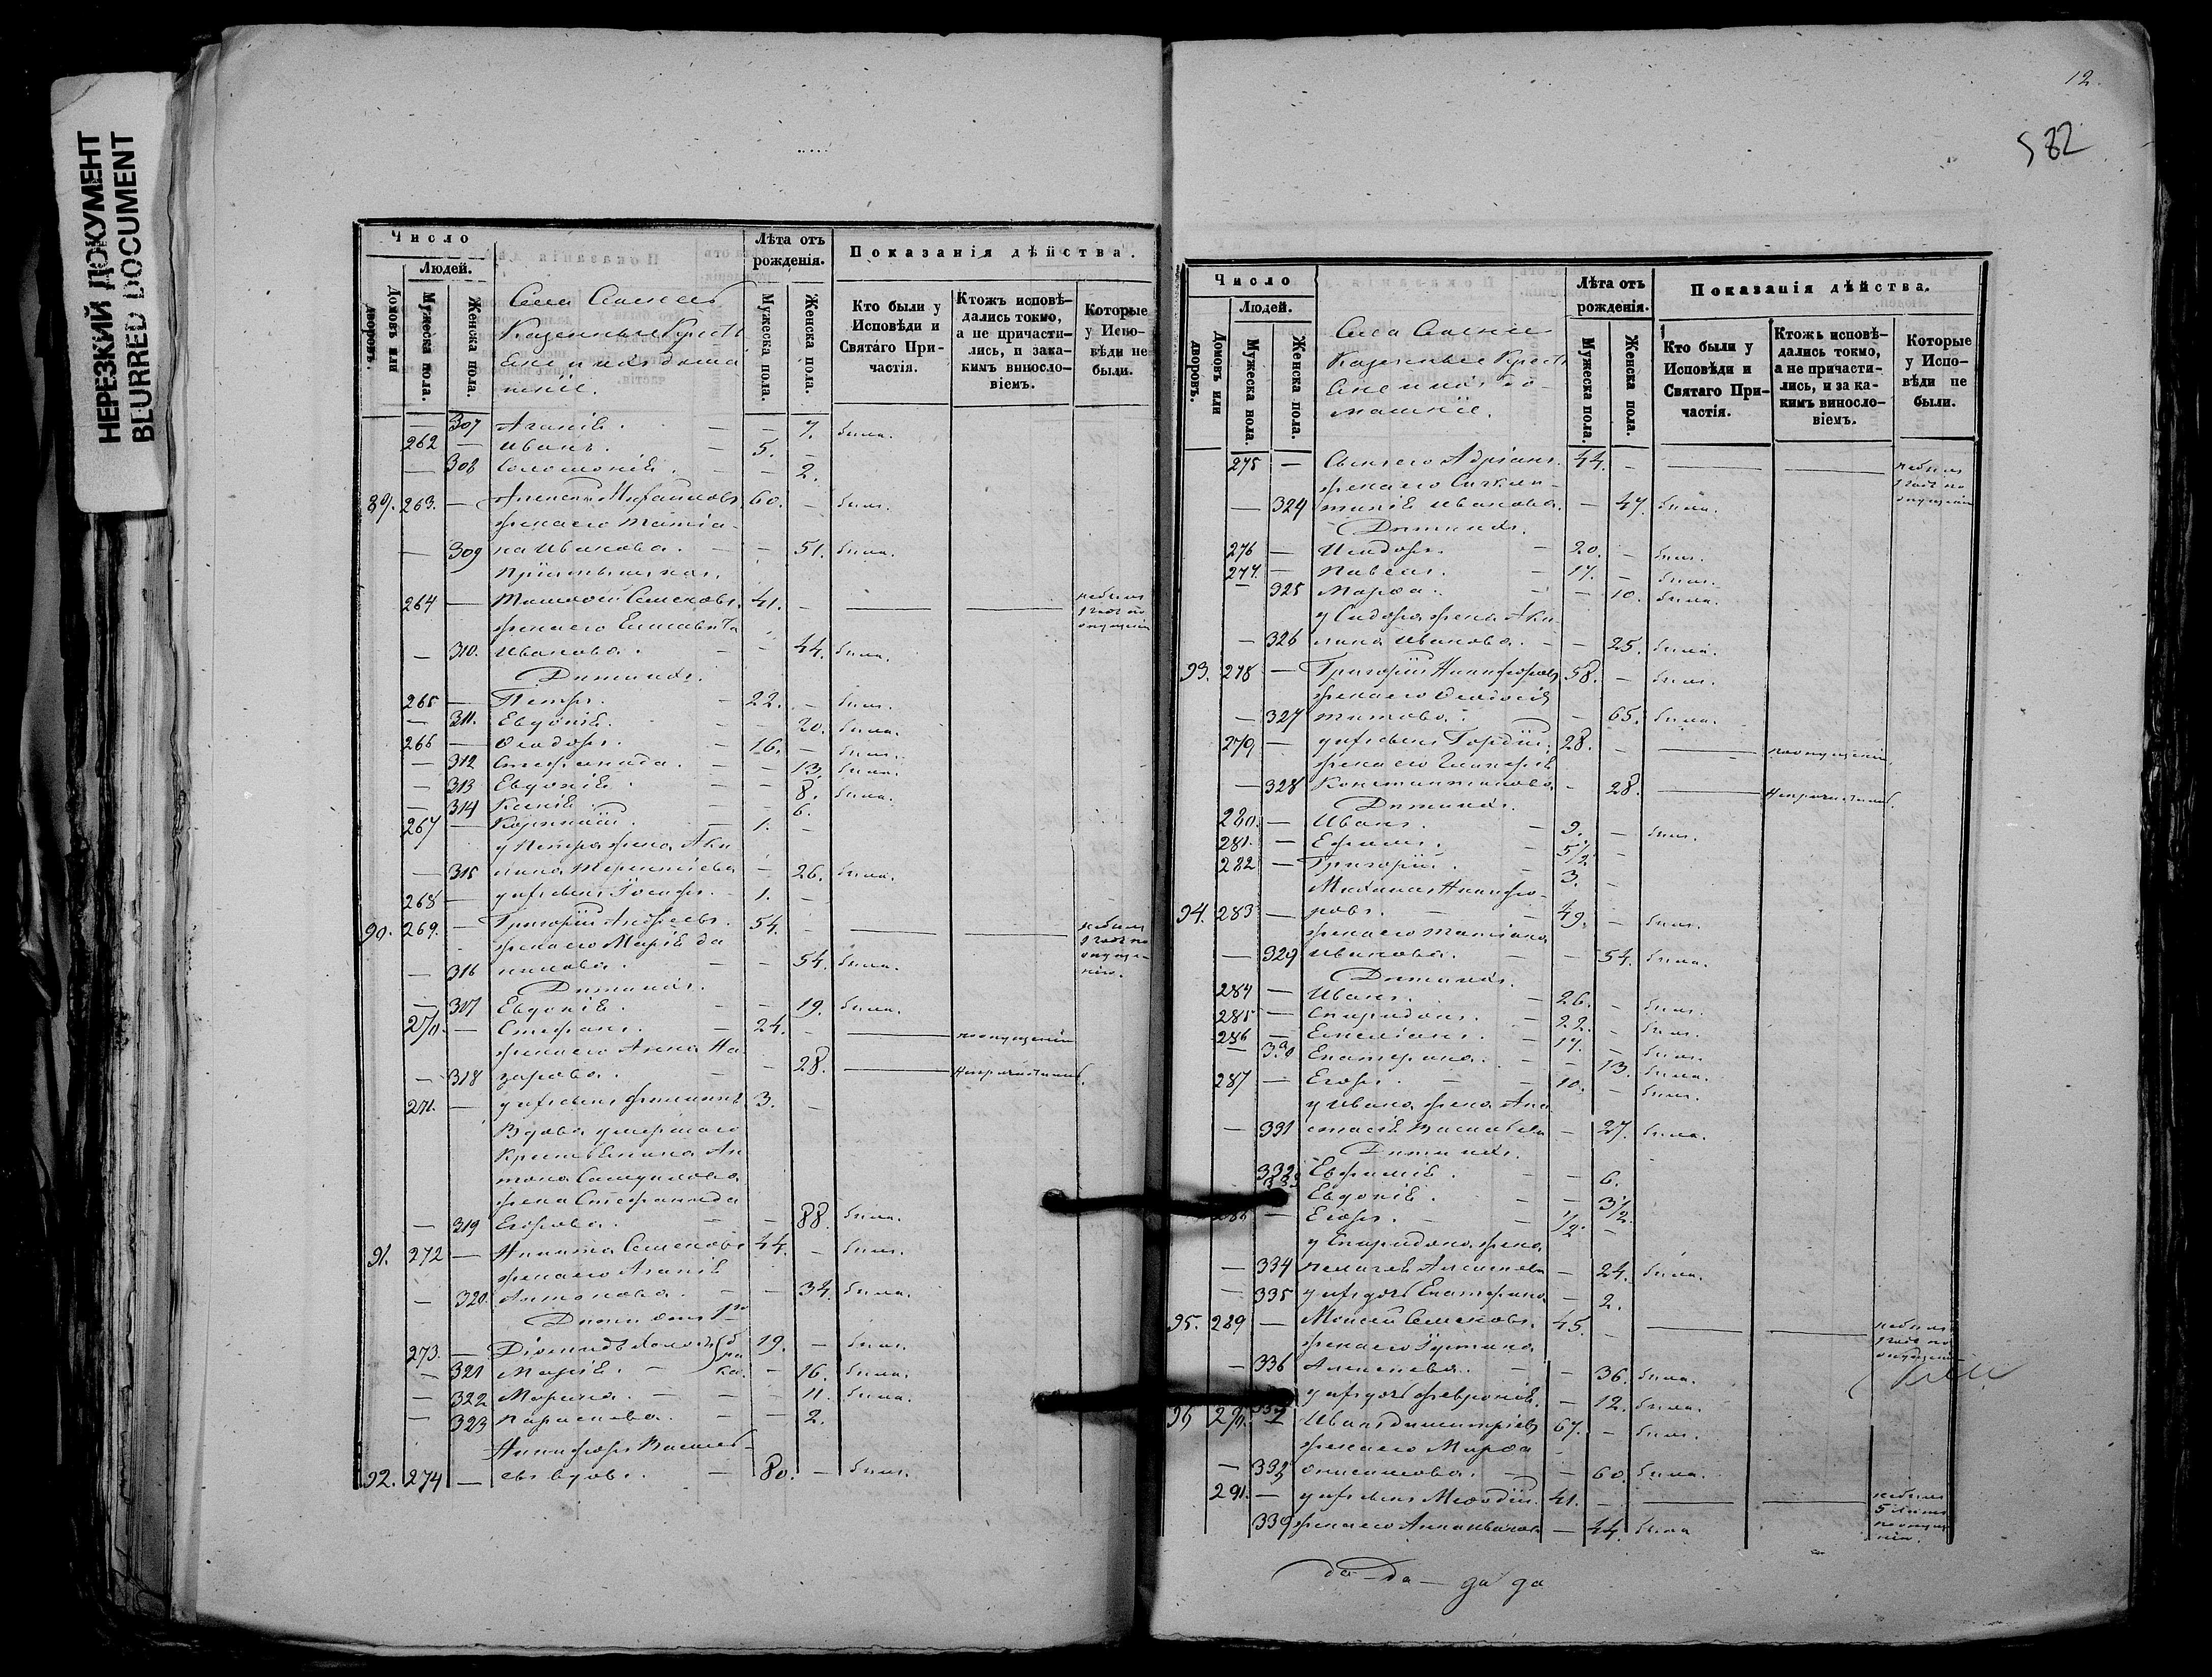 НЕРЕЗКИЙ ДОКУМЕНТ
BLURRED DOCUMENT
Число
Людей.
Домовъ или дворовъ.
Мужеска пола.
Женска пола.
Села
Казенные Кресть
ихъ домаш
ніе.
Лѣта отъ рожденія.
Мужеска пола.
Женска пола.
Показанія дѣйства.
Кто были у Исповѣди и Святаго При-частія.
Ктожъ исповѣ-дались токмо, а не причасти-лись, и зака-кимъ винословіемъ.
Которые у Испо-вѣди не были.
— 307 — 7. была.
262 — Иванъ. — 5. —
— 308 Соломонія. — — 2.
89. 263. — Михайловъ 60. — былъ.
жена его Татіа-
— 309 на Иванова. — — 51. была.
264 — Семеновъ. 41. — небылъ
жена его Елисавета
— 310. Иванова. — — 44. была.
Дети ихъ.
265 — Петръ. — 22. — былъ.
— 311. Евдокія. — — 20. была.
266 — Ѳеодоръ. — 16. — былъ.
— 312 Стефанида. — — 13. была.
— 313 Евдокія. — — 8. была.
— 314 Ксенія. — — 6.
267 — — 1. —
у Петра жена Аки
— 315 лина Терентіева — 26. была.
268 — у ихъ сынъ Іосифъ. — 1. —
90. 269. — Григорій Андреевъ. 54. — небылъ
жена его Марія Да
— 316 нилова. — — 54. была.
Дети ихъ.
— 317 Евдокія. — — 19. была.
270. — Стефанъ. — 24. — поопущенію
жена его Анна На
— 318 зарова. — — 28. непричастилась.
271. — у ихъ сынъ Филиппъ 3. —
Вдова умершаго
Крестьянина Ан
тона
жена Стефанида
— 319 Егорова. — — 88. была.
91. 272 — Никита Семеновъ 44. — былъ.
жена его Агапія
— 320. Антонова. — — 34. была.
Дети отъ 1го
брака.
273. — 19. — былъ.
— 321 Марія. — — 16. была.
— 322 Марина. — — 11. была.
— 323 Параскева. — — 2.
Никифоръ Василь-
92. 274 — евъ вдовъ. — 80. — былъ.
12.
582
Число
Людей.
Домовъ или дворовъ.
Мужеска пола.
Женска пола.
Села
Казенные Кресть
ихъ до-
машніе.
Лѣта отъ рожденія.
Мужеска пола.
Женска пола.
Показанія дѣйства.
Кто были у Исповѣди и Святаго При-частія.
Ктожъ исповѣ-дались токмо, а не причасти-лись, и за ка-кимъ винословіемъ.
Которые у Испо-вѣди не были.
275 — Сынъ его Адріанъ. 44. — небылъ
жена его
— 324 Иванова. — 47. была.
Дети ихъ.
276 — — 20. — былъ.
277. — Павелъ. — 17. — былъ.
— 325 Марѳа. — — 10. была.
у Сидора жена Аки
— 326 лина Иванова. — — 25. была.
93. 278 — Григорій Никифоровъ 58. — былъ.
жена его Ѳеодосія
— 327 Титова. — 65. была.
279 — у ихъ сынъ Гордій. 28. — поопущенію.
жена его Гликерія
— 328 Константинова — 28. непричастилась.
Дети ихъ.
280. — Иванъ. — 9. — былъ.
281. — Ефимъ. — 5½. —
282 — Григорій. — 3. —
Михаилъ Никифо-
94. 283 — ровъ. — 49. — былъ.
жена его Татіана
— 329 Иванова. — — 54. была.
Дети ихъ.
284 — Иванъ. — 26. — былъ.
285 — Спиридонъ. — 22. — былъ.
286 — Емеліанъ. — 17. — былъ.
— 330 Екатерина. — — 13. была.
287 — Егоръ. — 10. — былъ.
у Ивана жена Ана
— 331 стасія Васильева — 27. была.
Дети ихъ.
332 Евфимія. — — 6.
333 Евдокія. — — 3½.
288 — Егоръ. — ½. —
у Спиридона жена
— 334 Пелагея — 24. была.
— 335 у ихъ дочь Екатерина. — 2.
95. 289 — Моисей Семеновъ. 45. — небылъ
жена его Іуліана
— 336 Алексеева. — — 36. была.
у ихъ дочь Февронія. — 12. была.
96 290. — Иванъ Димитріевъ 67. — былъ.
жена его Марѳа
— 338 Онисимова. — — 60. была.
291. — у ихъ сынъ Меѳодій. 41. — небылъ
339 жена его Анна Иванова — 44. была